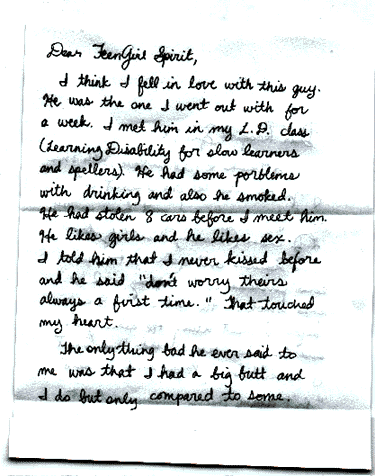 Dear TeenGirl Spirit,
I think I fell in love with this guy.
He was the one I went out with for
a week. I met him in my L.D. class
(Learning Disability for slow learners
and spellers). He had some porblems
with drinking and also he smoked.
He had stolen 8 cars before I meet him.
He likes girls and he likes sex.
I told him that I never kissed before
and he said "don't worry theirs
always a first time." That touched
my heart.
The only thing bad he ever said to
me was that I had a big butt and
I do but only compared to some.